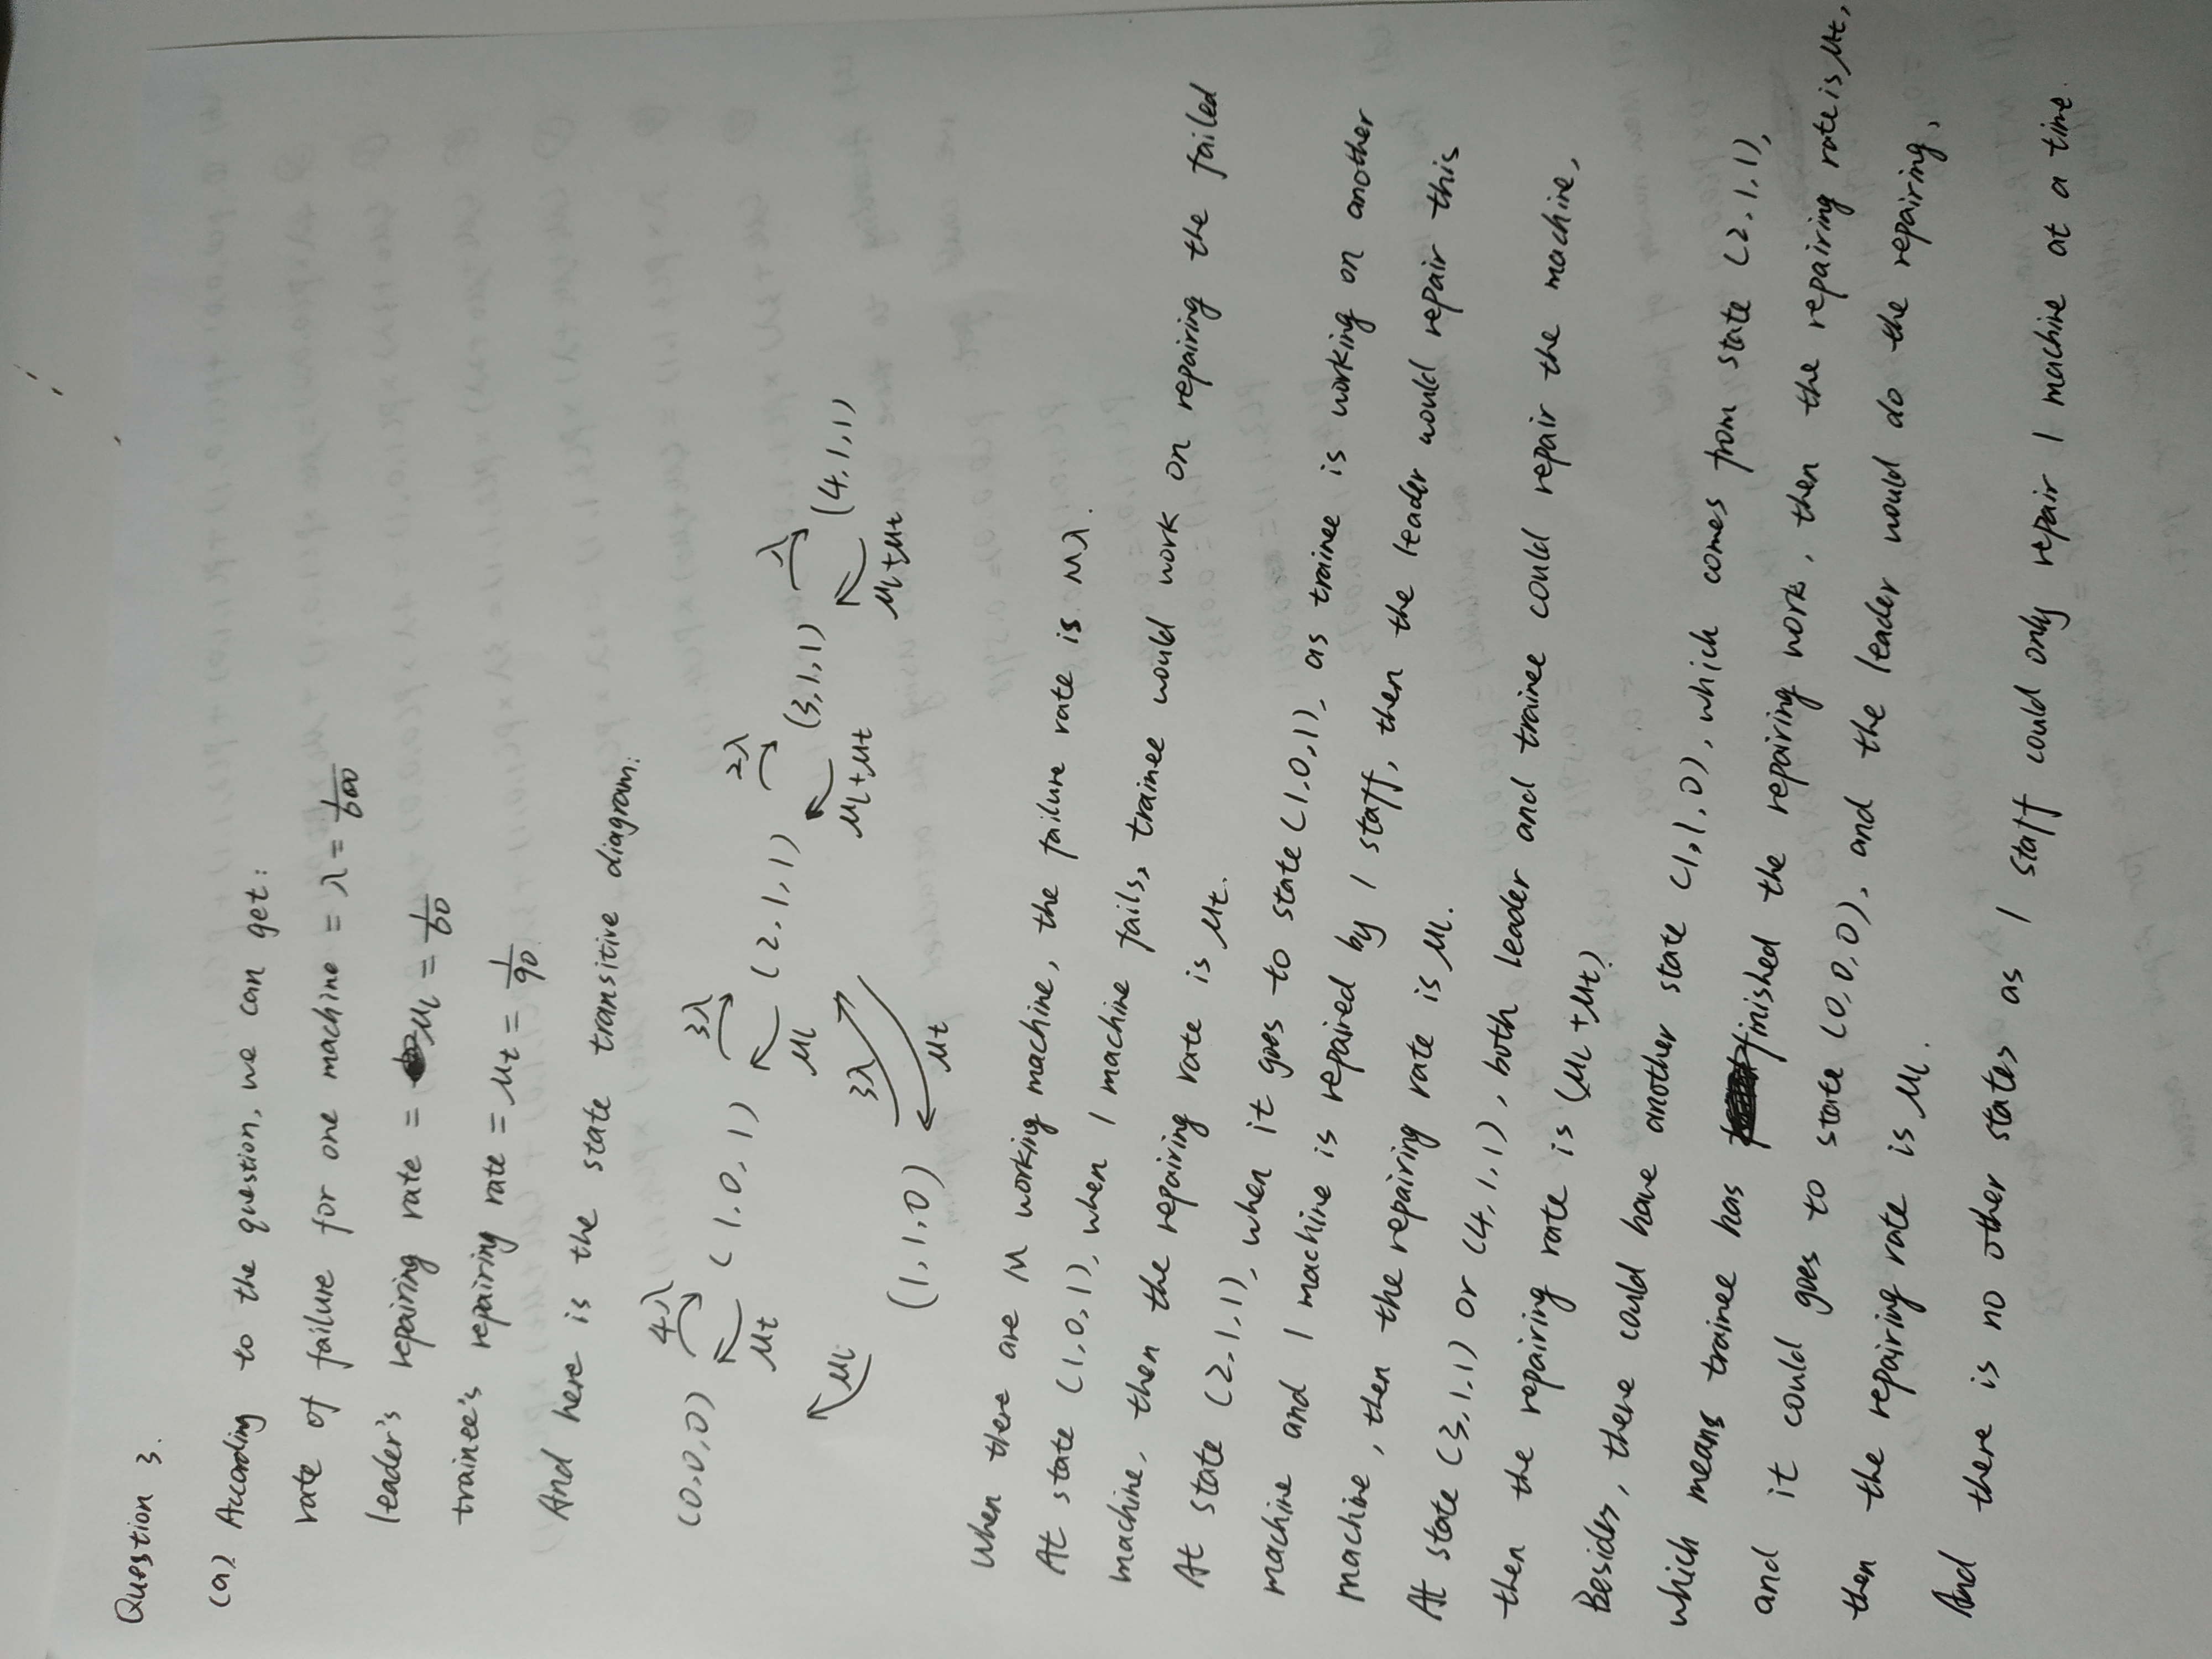 Question 3.
(a) According to the question, we can get:
rate of failure for one machine = λ = 1/600
leader's repairing rate = μl = 1/60
trainee's repairing rate = μt = 1/90
And here is the state transitive diagram:
4λ 3λ 2λ λ
(0,0,0) (1,0,1) (2,1,1) (3,1,1) (4,1,1)
μt μl μl+μt μl+μt
μl 3λ
(1,1,0)
μt
When there are M working machine, the failure rate is Mλ.
At state (1,0,1), when 1 machine fails, trainee would work on repairing the failed
machine, then the repairing rate is μt.
At state (2,1,1), when it goes to state (1,0,1), as trainee is working on another
machine and 1 machine is repaired by 1 staff, then the leader would repair this
machine, then the repairing rate is μl.
At state (3,1,1) or (4,1,1), both leader and trainee could repair the machine,
then the repairing rate is (μl+μt)
Besides, there could have another state (1,1,0), which comes from state (2,1,1),
which means trainee has finished the repairing work, then the repairing rate is μt,
and it could goes to state (0,0,0), and the leader would do the repairing,
then the repairing rate is μl.
And there is no other states as 1 staff could only repair 1 machine at a time.